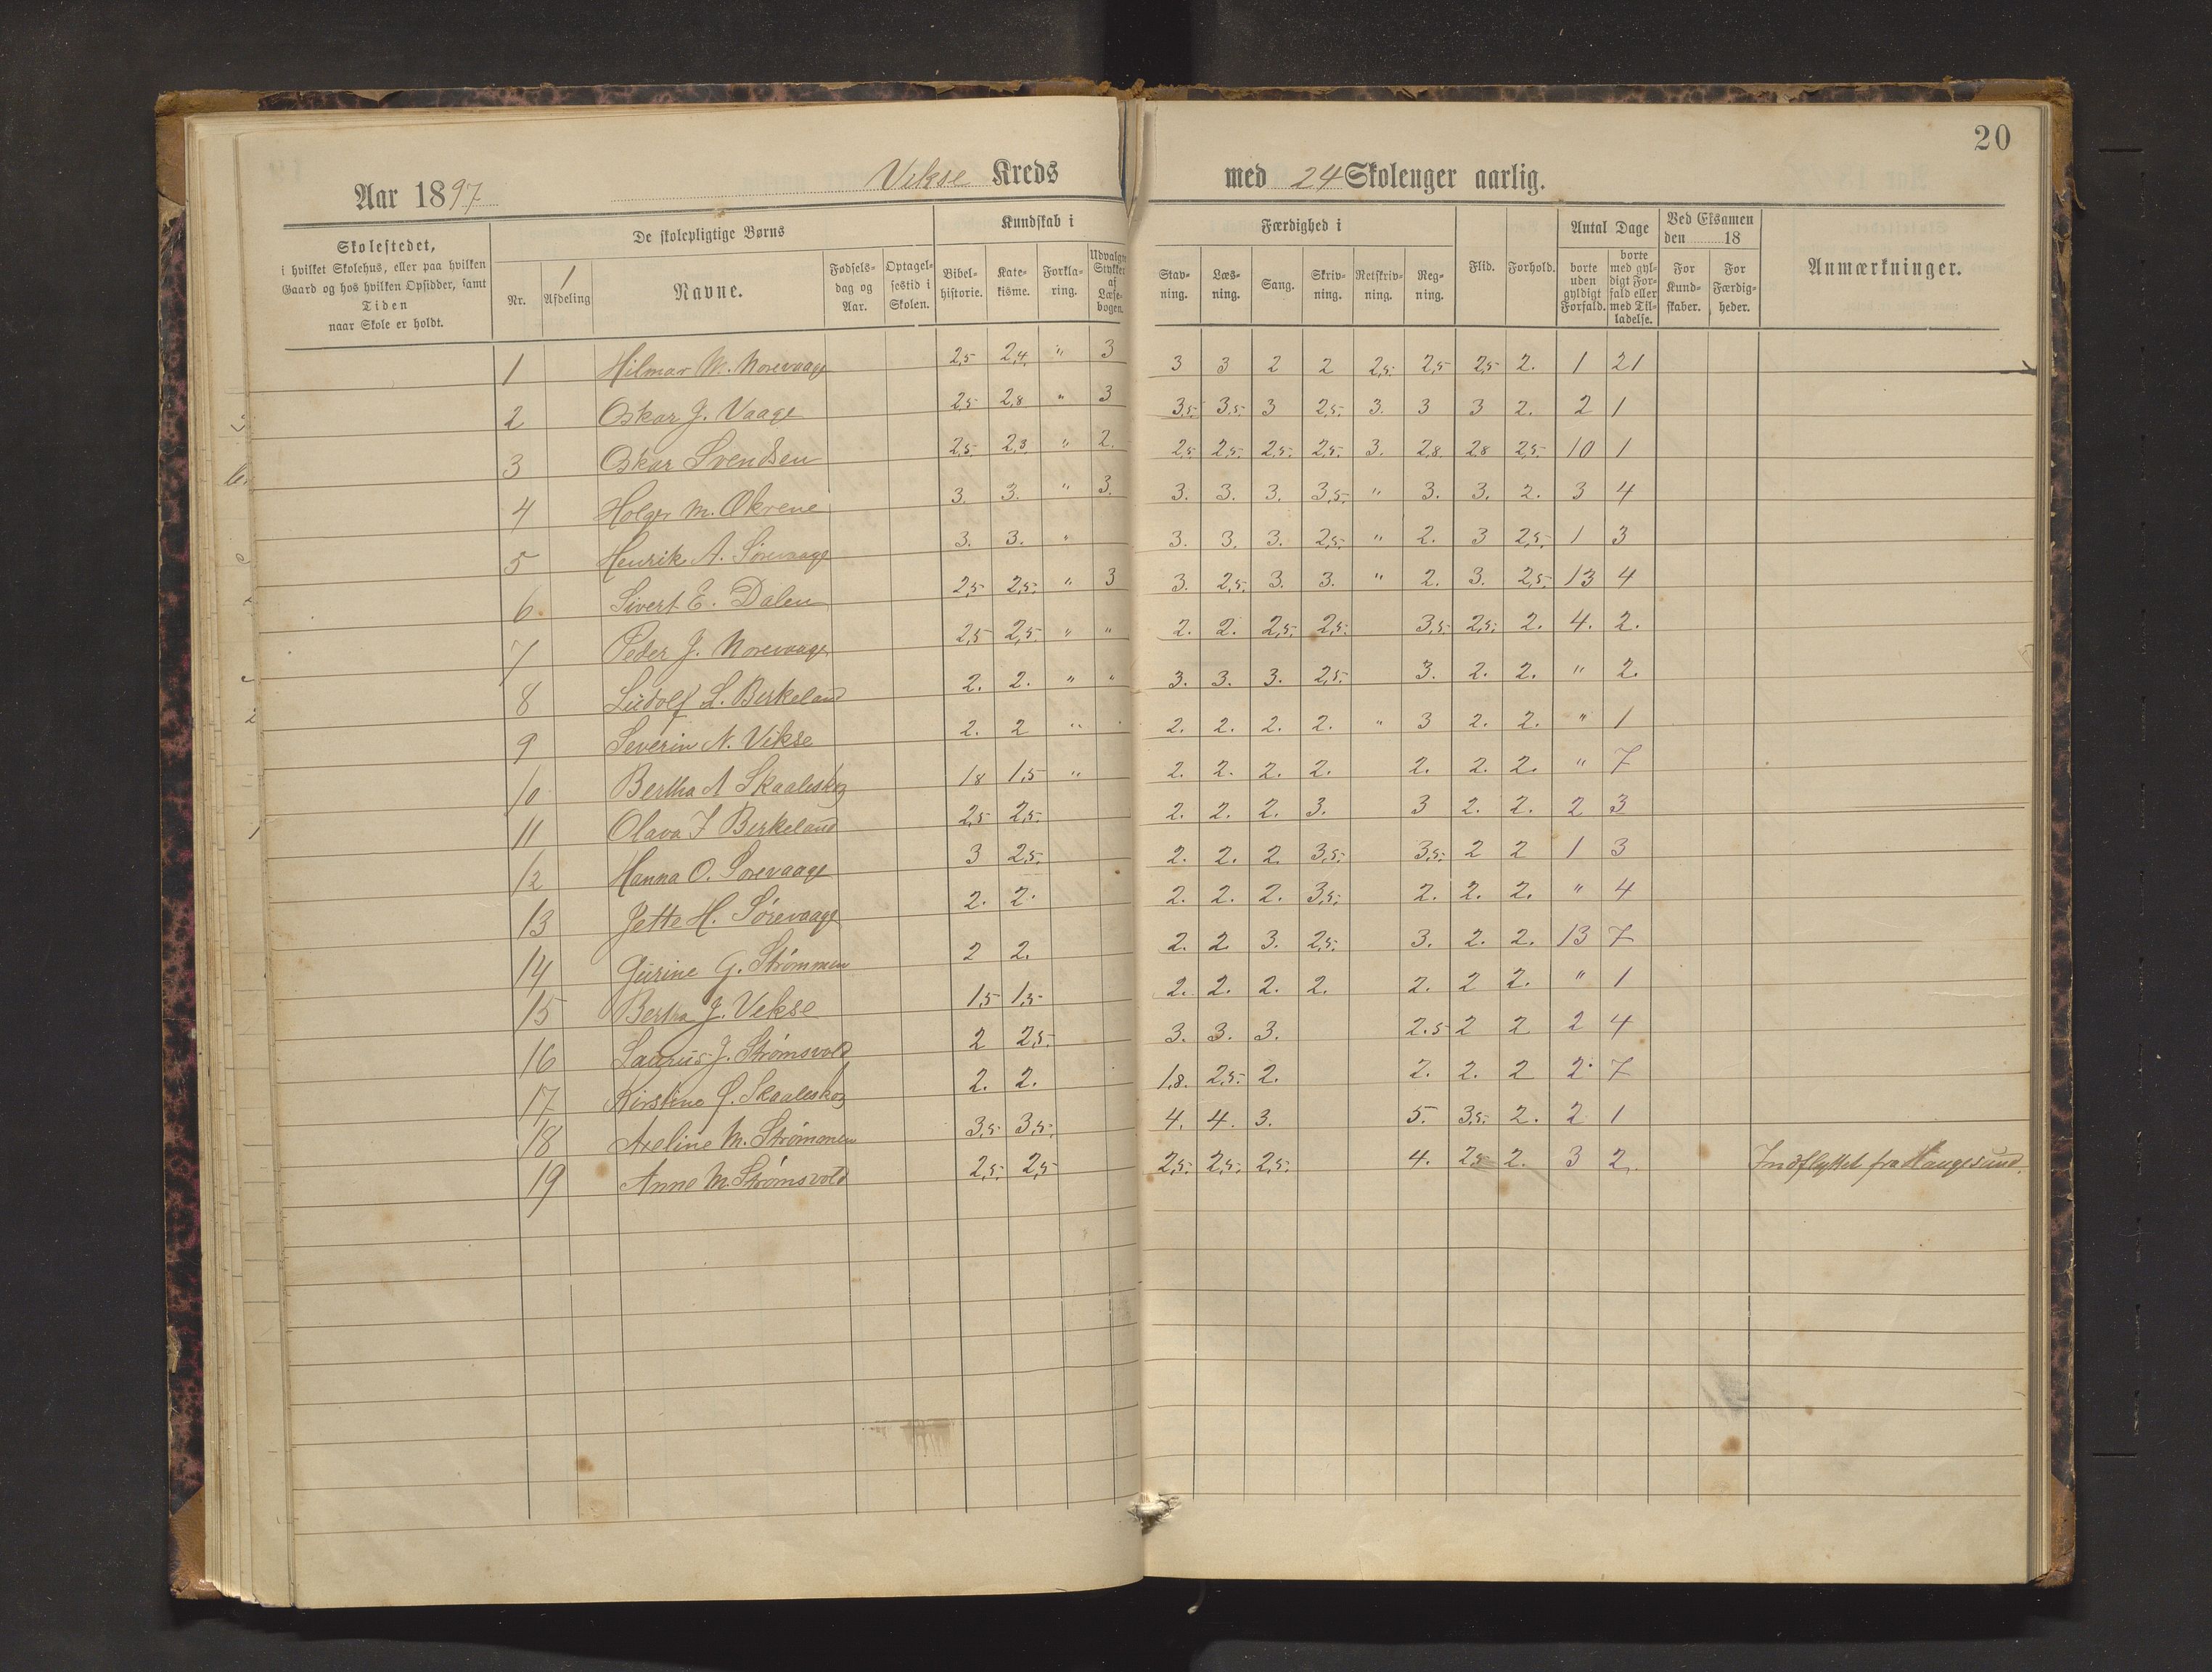 20
Aar 1897 Vikse Kreds med 24 Skoleuger aarlig.
Skolestedet, i hvilket Skolehus, eller paa hvilken Gaard og hos hvilken Opsidder, samt Tiden naar Skole er holdt.
De skolepligtige Børns
Nr. 1 Afdeling Navne. Fødselsdag og Aar. Optagelsestid i Skolen.
Kundskab i
Bibelhistorie. Katekisme. Forklaring. Udvalgte Stykker af Læsebogen.
Færdighed i
Stavning. Læsning. Sang. Skrivning. Retskrivning. Regning.
Flid. Forhold.
Antal Dage
borte uden gyldigt Forfald. borte med gyldigt Forfald eller med Tilladelse.
Ved Eksamen den 18
For Kundskaber. For Færdigheder.
Anmærkninger.
1 Hilmar W. Norevaage 2,5 2,4 " 3 3 3 2 2 2,5. 2,5 2,5 2. 1 21
2 Oskar J. Vaage 2,5 2,8 " 3 3,5. 3,5. 3 2,5. 3. 3 3 2. 2 1
3 Oskar Svendsen 2,5. 2,8 " 2. 2,5 2,5. 2,5. 2,5. 3. 2,8. 2,8 2,5. 10 1
4 Holger M. Økrene 3. 3. " 3. 3. 3. 3. 3,5. " 3. 3. 2. 3 4
5 Henrik A. Sørevaage 3. 3. " 3. 3. 3. 2,5. " 2. 3 2,5. 1 3
6 Sivert E. Dalen 2,5 2,5. " 3 3. 2,5. 3. 3. " 2. 3. 2,5. 13 4
7 Peder J. Norevaage 2,5 2,5. " " 2. 2. 2,5. 2,5. 3,5. 2,5. 2. 4. 2.
8 Ludolf L. Birkeland 2. 2. " " 3. 3. 3. 2,5. 3. 2. 2. " 2.
9 Severin N. Vikse 2. 2 " 2. 2. 2. 2. " 3 2. 2. " 1
10 Bertha A Skaaleskog 1,8 1,5 " 2. 2. 2. 2. 2. 2. 2. " 7
11 Olava I Birkeland 2,5 2,5. 2. 2. 2. 3. 3 2. 2. 2 3
12 Hanna O. Sørevaage 3 2,5. 2. 2. 2. 3,5. 3,5. 2 2 1 3
13 Jette H. Sørevaage 2. 2. 2. 2. 2. 3,5. 2. 2. 2. " 4
14 Gurine G. Strømmen 2 2. 2. 2. 3. 2,5. 3. 2. 2. 13 7
15 Bertha J. Vikse 1,5 1,5 2. 2. 2. 2. 2. 2 2. " 1
16 Laurus J. Strømsvold 2 2,5. 3. 3. 3. 2.5 2 2 2 4
17 Kirstine Skaaleskog 2. 2. 1,8. 2,5. 2. 2. 2. 2 2. 7
18 Axeline M. Strømmen 3,5. 3,5. 4. 4. 3. 5. 3,5. 2. 2 1
19 Anne M. Strømsvold 2,5. 2,5 2,5. 2,5. 2,5. 4. 2,5 2. 3 2. Indflyttet fra Haugesund.